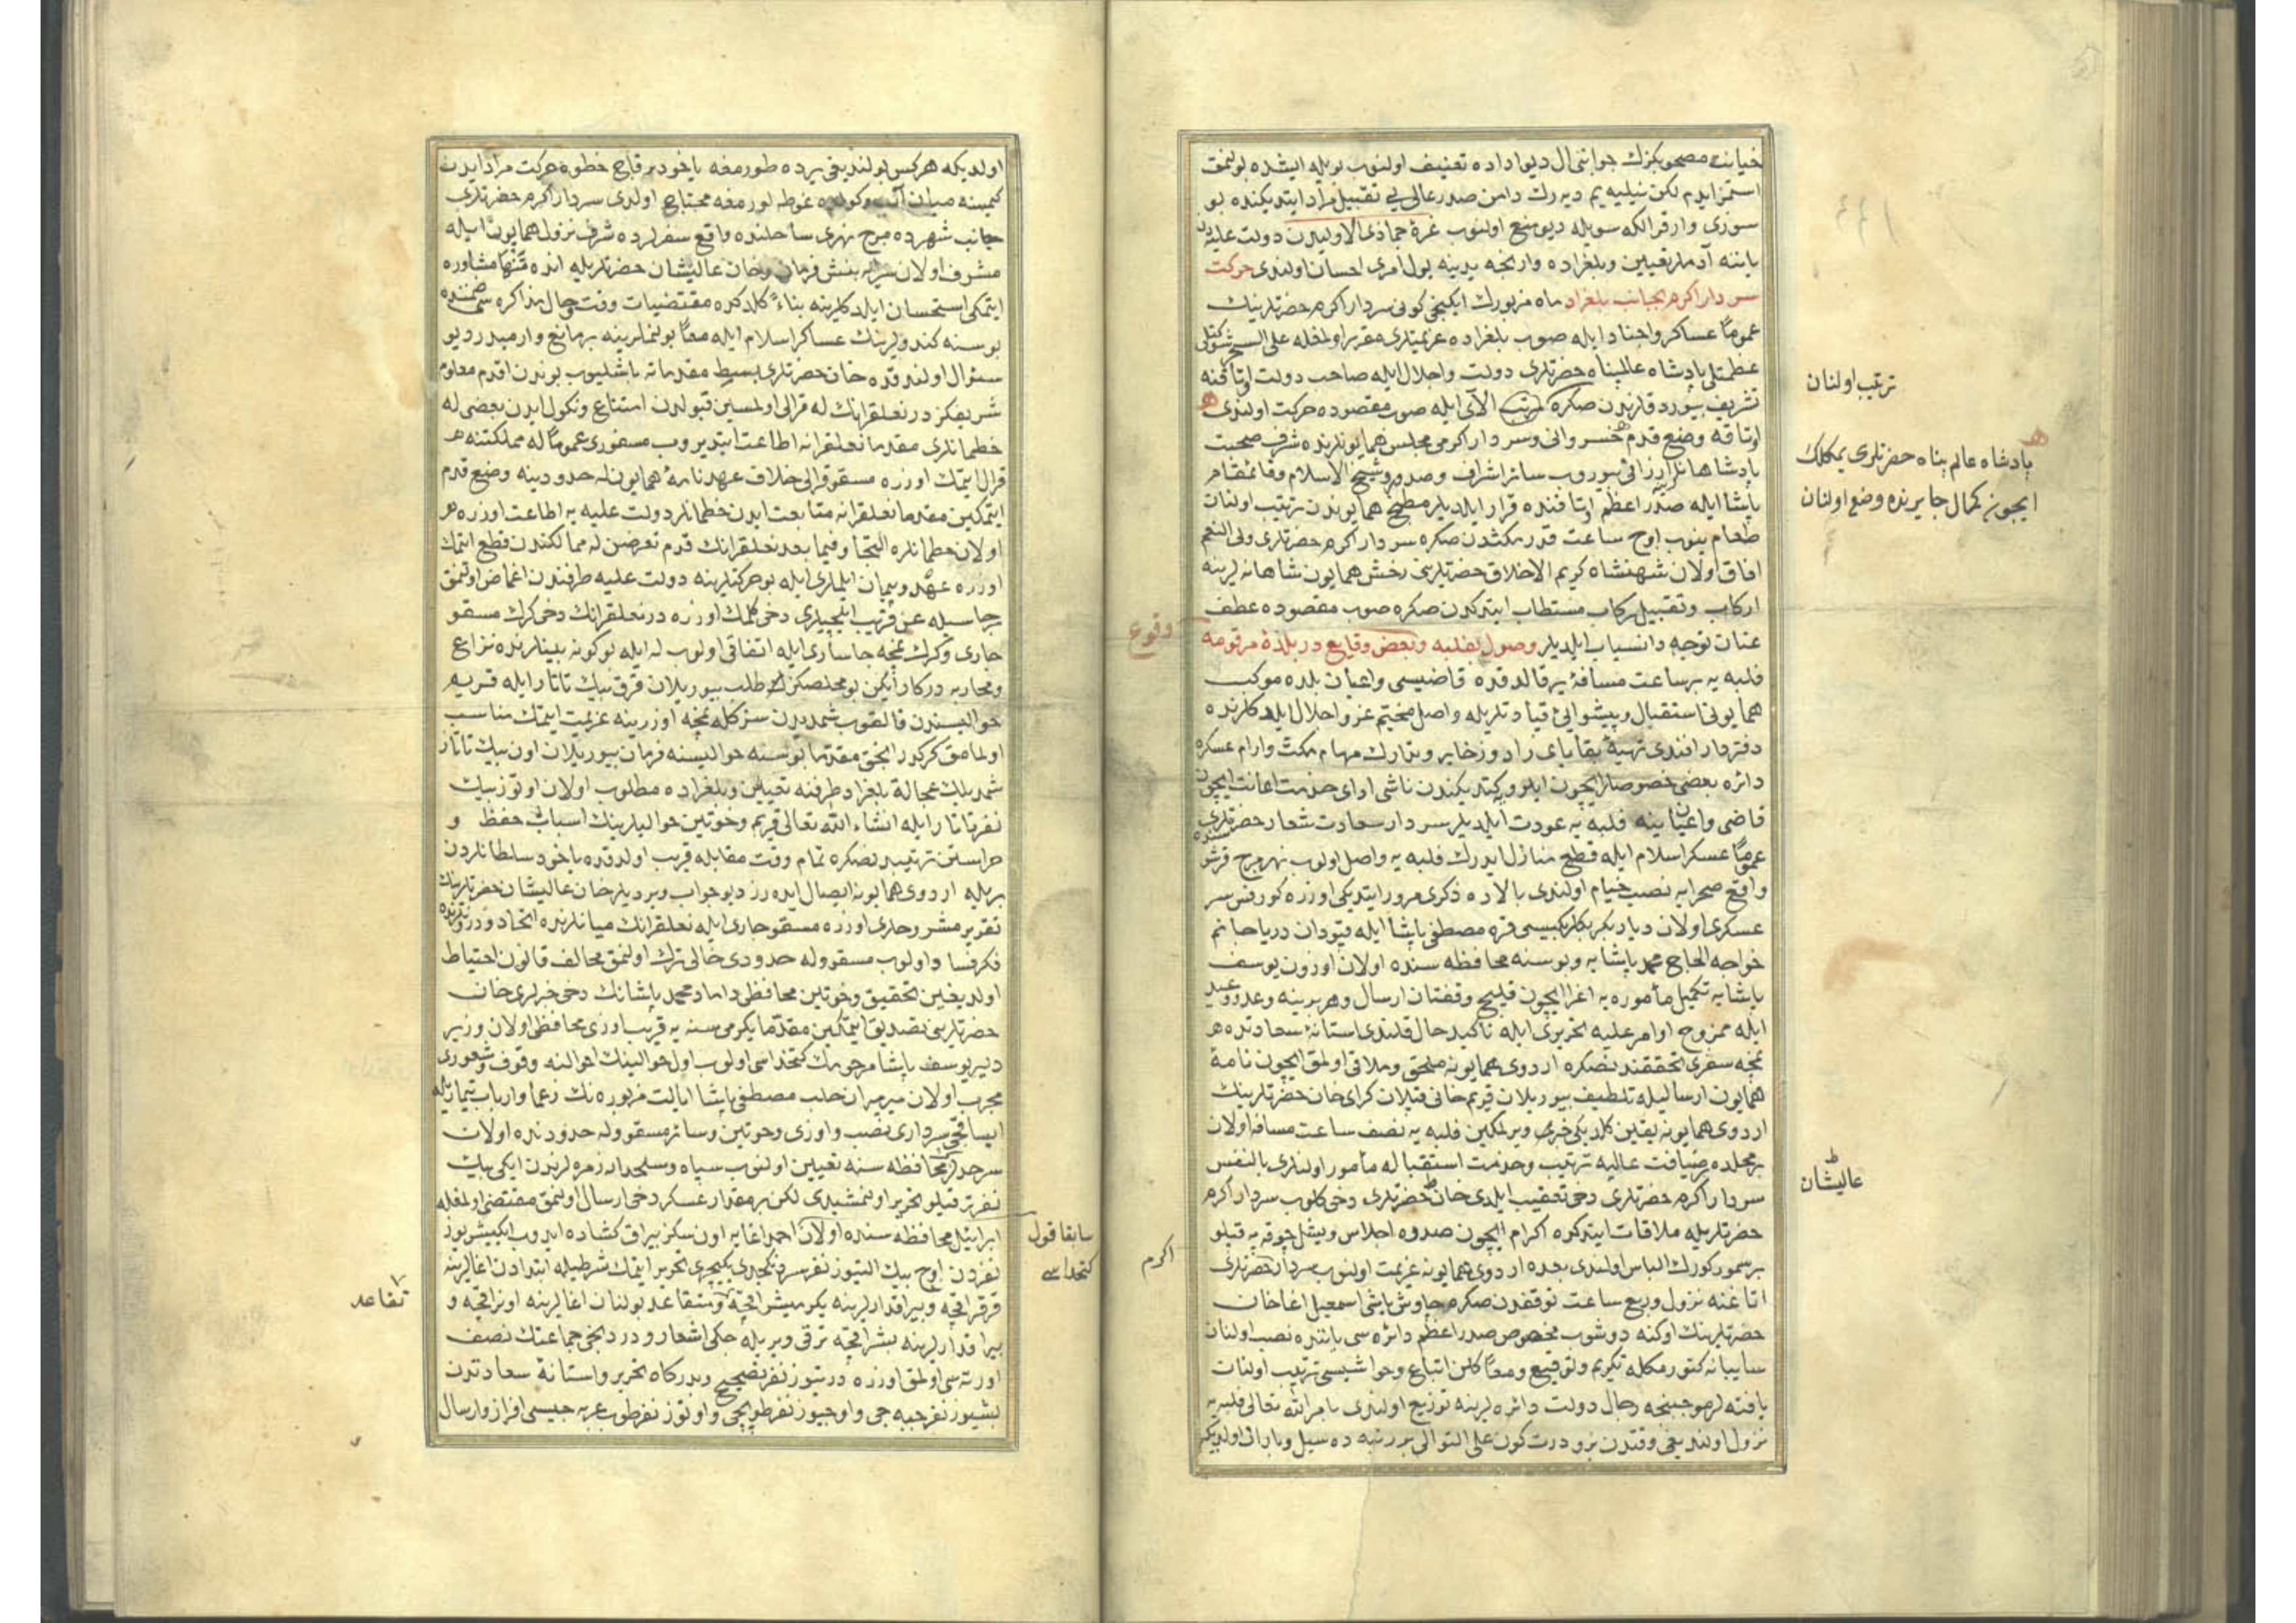 خیانت مصحوبکزك جوابنی ال دیو اداده تعنیف اولنوب بویله ایشده بولنمق
استمز ایدم لکن نیلیه یم دیه رك دامن صدر عالی یی تقبیل مراد ایتدیکنده بو
سوزی وار قرالکه سویله دیو منع اولنوب غرۀ جماذی الاولیدن دولت علیه
یاننه آدملر تعیین وبلغراده وارنجه یدینه یول امری احسان اولندی حرکت
سردار اکرم بجانب بلغراد ماه مزبورك ایکنجی کونی سردار اکرم حضرتلرینك
عموماً عساکر واجناد ایله صوب بلغراده عزیمتلری مقرر اولمغله علی السحر شوکتلی
عظمتلی پادشاه عالمپناه حضرتلری دولت واجلال ایله صاحب دولت اوتاقنه
تشریف بیوردقلرندن صکره مرتب الآی ایله صوب مقصوده حرکت اولندی
اوتاقه وضع قدم خسروانی وسردار اکرمی مجلس همایونلرنده شرف صحبت
پادشاهانه لرین ارزانی بیوروب سائر اشراف وصدور وشیخ الاسلام وقائمقام
پاشا ایله صدر اعظم اوتاقنده قرار ایلدیلر مطبخ همایوندن ترتیب اولنان
طعام ینوب اوچ ساعت قدر مکثدن صکره سردار اکرم حضرتلری ولی النعم
افاق اولان شهنشاه کریم الاخلاق حضرتلرینی رخش همایون شاهانه لرینه
ارکاب وتقبیل رکاب مستطاب ایتدکدن صکره صوب مقصوده عطف
عنان توجه وانسیاب ایلدیلر وصول بفلبه وبعض وقایع در بلدۀ مرقومه
فلبه یه بر ساعت مسافه یر قالدقده قاضیسی واعیان بلده موکب
همایونی استقبال وپیشوالئ قیادتلریله واصل مخیم عز واجلال ایلدکلرنده
دفتردار افندی تهیۀ بقایای زاد وذخایر وتدارك مهام مکث وارام عسکره
دائره بعضی خصوصلر ایچون ایلرو کیتدیکندن ناشی ادای خدمت اعانت ایچون
قاضی واعیان ینه فلبه یه عودت ایلدیلر سردار سعادت شعار حضرتلری
عموماً عسکر اسلام ایله قطع منازل ایدرك فلبه یه واصل اولوب نهر مرج قرشوسنده
واقع صحرایه نصب خیام اولندی بالاده ذکری مرور ایتدیکی اوزره کورفس سر
عسکری اولان دیاربکر بکلربکیسی قره مصطفی پاشا ایله قپودان دریا جانم
خواجه الحاج محمد پاشایه وبوسنه محافظه سنده اولان اوزون یوسف
پاشایه تکمیل مأموره یه اغرا ایچون قلیج وقفتان ارسال وهر برینه وعد ووعید
ایله ممزوج اوامر علیه تحریری ایله تأکید حال قلندی استانۀ سعادتده
نمچه سفری تحققندنصکره اردوی همایونه ملحق وملاقی اولمق ایچون نامۀ
همایون ارسالیله تلطیف بیوریلان قریم خانی قپلان کرای خان حضرتلرینك
اردوی همایونه یقین کلدیکی خبری ویرلمکین فلبه یه نصف ساعت مسافه اولان
بر محلده ضیافت عالیه ترتیب وخدمت استقباله مأمور اولنلری بالنفس
سردار اکرم حضرتلری دخی تعقیب ایلدی خان حضرتلری دخی کلوب سردار اکرم
حضرتلریله ملاقات ایتدکده اکرام ایچون صدوه اجلاس ویشل چوقه یه قپلو
بر سمور کورك الباس اولندی بعده اردوی همایونه عزیمت اولنوب سردار حضرتلری
اتاغنه نزول وربع ساعت توقفدن صکره چاوش باشی اسمعیل اغا خان
حضرتلرینك اوکنه دوشوب مخصوص صدر اعظم دائره سی یاننده نصب اولنان
سایبانه کتورمکله تکریم وتوقیع ومعاً کلن اتباع وحواشیسی ترتیب اولنان
یافته لر موجبنجه رجال دولت دائره لرینه توزیع اولندی بامر الله تعالی فلبه یه
نزول اولندیغی وقتدن برو درت کون علی التوالی بر رتبه ده سیل وباران اولدیکه
ترتیب اولنان
پادشاه عالم پناه حضرتلری یمکلك
ایچون کمال جایرنده وضع اولنان
وقوع
عالیشان
اکرم
اولدیکه هرکس بولندیغی یرده طورمغه یاخود بر قاج خطوه حرکت مراد ایدن
کیمسنه میان آب وکولده غوطه لورمغه محتاج اولدی سردار اکرم حضرتلری
جانب شهرده مرج نهری ساحلنده واقع سفرلرده شرف نزول همایون ایله
مشرف اولان سرایه بنش فرمان وخان عالیشان حضرتلریله انده تنها مشاوره
ایتمکی استحسان ایلدکلرینه بناءً کلدکده مقتضیات وقت وحال مذاکره سی ضمننده
بو سنه کندولرینك عساکر اسلام ایله معاً بولنملرینه بر مانع وارمیدر دیو
سئوال اولندقده خان حضرتلری بسیط مقدماته باشلیوب بوندن اقدم معلوم
شریفکز در نعلقرانك له قرالی اولمسین قبولدن امتناع ونکول ایدن بعضی له
خطمانلری مقدما نعلقرانه اطاعت ایتدیروب مسفوری عموماً له مملکتنه
قرال ایتمك اوزره مسقو قرالی خلاف عهدنامۀ همایون له حدودینه وضع قدم
ایتمکین مقدما نعلقرانه متابعت ایدن خطمانلر دولت علیه یه اطاعت اوزره
اولان خطمانلره التجا وفیما بعد نعلقرانك قدم نحوستن له ممالکندن قطع ایتمك
اوزره عهد وپیمان ایلملری ایله بو حرکتلرینه دولت علیه طرفندن اغماض اولنمق
رجاسیله عن قریب ایلچیلری دخی کلمك اوزره در نعلقرانك دخی کرك مسقو
چاری وکرك نمچه چاساری ایله اتفاقی اولوب له ایله بو کونه بینلرنده نزاع
ومحاربه درکار ایکن بو مخلصکزك طلب بیوریلان قرق بیك تاتار ایله قریم
حوالیسندن قالقوب شمدیدن سز کله نمچه اوزرینه عزیمت ایتمك مناسب
اولمامق کرکدر انجق مقدما بوسنه حوالیسنه فرمان بیوریلان اون بیك تاتار
شمدیلك عجالةً بلغراد طرفنه تعیین وبلغراده مطلوب اولان اوتوز بیك
نفر تاتار ایله انشاء الله تعالی قریم وخوتین حوالیلرینك اسباب حفظ و
حراستن ترتیبدنصکره تمام وقت مقابله قریب اولدقده یاخود سلطانلردن
بریله اردوی همایونه ایصال ایده رز دیو جواب ویردیلر خان عالیشان حضرتلرینك
تقریر مشروحلری اوزره مسقو چاری ایله نعلقرانك میانلرنده اتحاد ودرونلرنده
فکر فساد اولوب مسقو وله حدودی خالی ترك اولنمق مخالف قانون احتیاط
اولدیغین تحقیق وخوتین محافظی داماد محمد پاشانك دخی خبرلری خان
حضرتلرینی تصدیق ایتمکین مقدما یکرمی سنه یه قریب اوزی محافظی اولان وزیر
دلیر یوسف پاشا مرحومك کتخداسی اولوب اول حوالینك احوالنه وقوف وشعوری
مجرب اولان میرمیران حلب مصطفی پاشا ایالت مزبوره نك زعما وارباب تیماریله
ایساقچی سرداری نصب واوزی وخوتین وسائر مسقو وله حدودنده اولان
سرحدلر محافظه سنه تعیین اولنوب سپاه وسلحدار زمره لرندن ایکی بیك
نفر ترقیلو تحریر اولنمشیدی لکن بر مقدار عسکر دخی ارسال اولنمق مقتضی اولمغله
ابرائیل محافظه سنده اولان احمد اغایه اون سکز بیراق کشاده ایدوب ایکیشر یوز
نفردن اوچ بیك التیوز نفر سردنکجدی یکیچری تحریر ایتمك شرطیله ابتدادن اغالرینه
قرقر اقچه وبیراقدارلرینه یکرمیشر اقچه ومتقاعد بولنان اغالرینه اونر اقچه و
بیراقدارلرینه بشر اقچه ترقی ویریله جکی اشعار ودردنجی جماعتك نصف
اورته سی اولمق اوزره درتیوز نفر تصحیح وبدرکاه تحریر واستانۀ سعادتدن
بشیوز نفر جبه جی واوچیوز نفر طوپچی واوتوز نفر طوب عربه جیسی افراز وارسال
سابقا قول
کتخداسی
تقاعد